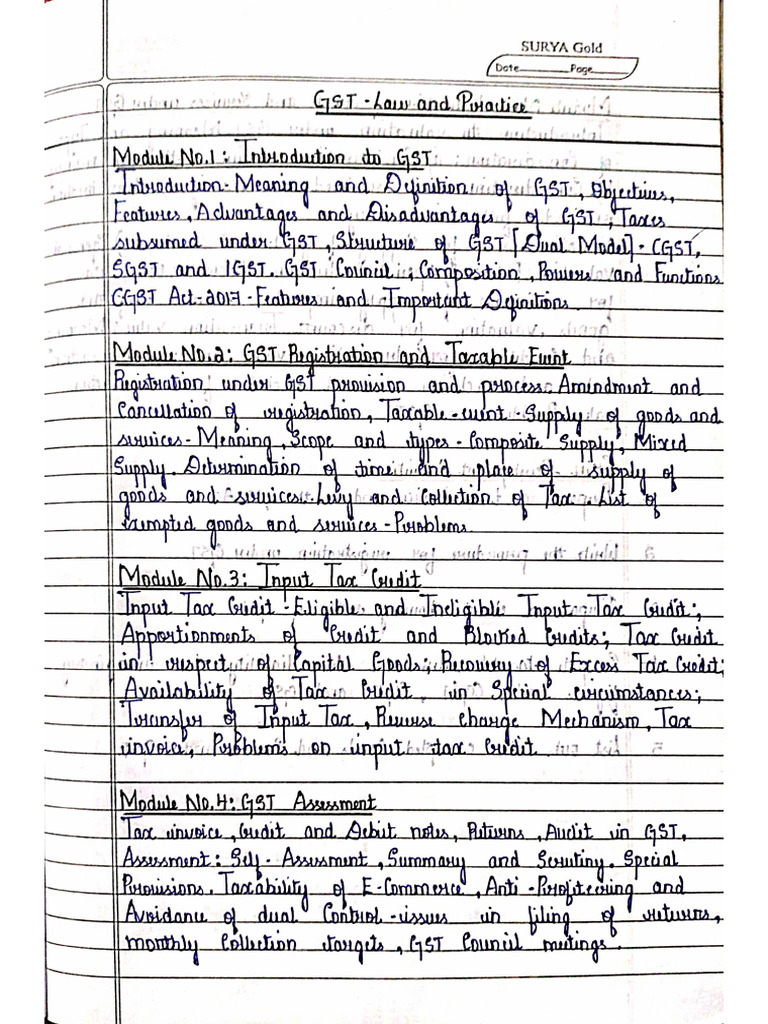 SURYA Gold
Date Page
GST - Law and Practice
Module No.1: Introduction to GST
Introduction - Meaning and Definition of GST, Objectives,
Features, Advantages and Disadvantages of GST, Taxes
subsumed under GST, Structure of GST [Dual Model] - CGST,
SGST and IGST. GST Council, Composition, Powers and Functions
CGST Act - 2017 - Features and Important Definitions.
Module No.2: GST Registration and Taxable Event
Registration under GST provision and process. Amendment and
Cancellation of registration, Taxable event - Supply of goods and
services - Meaning, Scope and types - Composite Supply, Mixed
Supply. Determination of time and place of supply of
goods and services. Levy and Collection of Tax. List of
exempted goods and services - Problems.
Module No.3: Input Tax Credit
Input Tax Credit - Eligible and Ineligible Input Tax Credit;
Apportionments of Credit and Blocked Credits; Tax Credit
in respect of Capital Goods; Recovery of Excess Tax Credit;
Availability of Tax Credit in Special circumstances;
Transfer of Input Tax, Reverse charge Mechanism, Tax
invoice, Problems on input tax credit
Module No.4: GST Assessment
Tax invoice, Credit and Debit notes, Returns, Audit in GST,
Assessment: Self - Assessment, Summary and Scrutiny. Special
Provisions. Taxability of E-Commerce, Anti - Profiteering and
Avoidance of dual Control - issues in filing of returns,
monthly Collection targets, GST Council meetings.